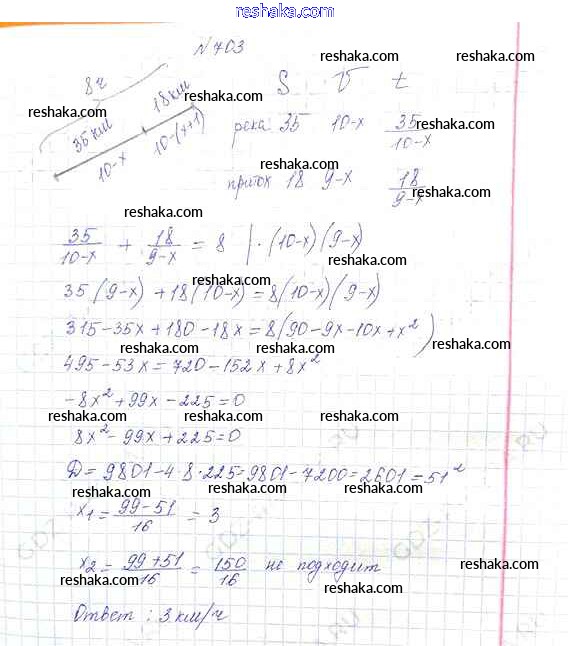 reshaka.com
N703
reshaka.com
8ч reshaka.com S V t
reshaka.com 35 км 18 км река 35 10-x 35/(10-x) reshaka.com
10-x 10-(x+1) reshaka.com
reshaka.com приток 18 9-x 18/(9-x) reshaka.com
reshaka.com
35/(10-x) + 18/(9-x) = 8 | ·(10-x)(9-x)
reshaka.com reshaka.com
35(9-x)+18(10-x)=8(10-x)(9-x)
reshaka.com
315-35x+180-18x=8(90-9x-10x+x²)
reshaka.com reshaka.com reshaka.com
495-53x=720-152x+8x²
-8x²+99x-225=0
reshaka.com reshaka.com reshaka.com
8x²-99x+225=0
Д=9801-4·8·225=9801-7200=2601=51²
reshaka.com reshaka.com reshaka.com
x₁=(99-51)/16=3
reshaka.com
x₂=(99+51)/16=150/16 не подходит
reshaka.com reshaka.com reshaka.com
Ответ: 3 км/ч
reshaka.com